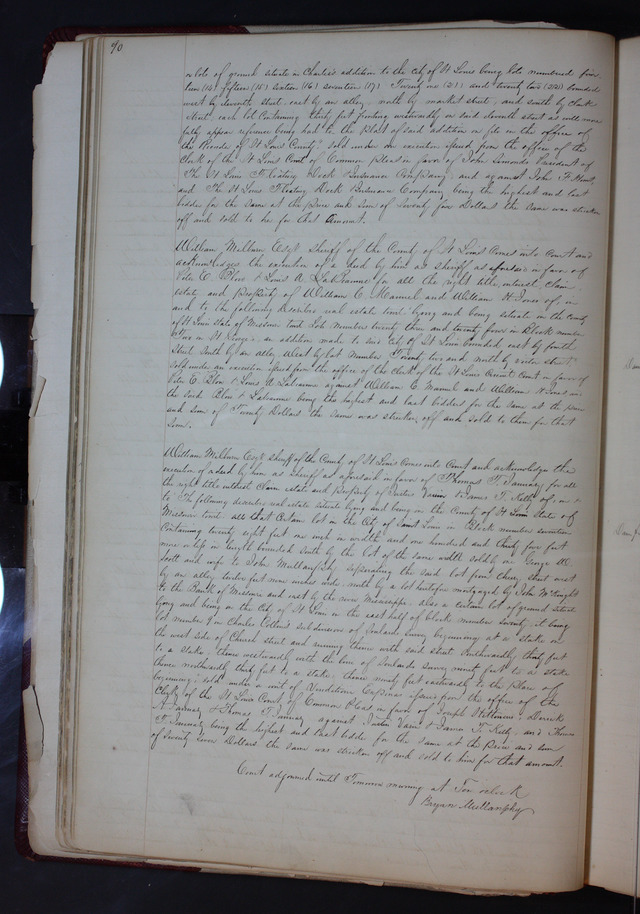 90
or lots of ground situate in Charless addition to the City of St Louis being lots numbered four
teen (14) fifteen (15) sixteen (16) seventeen (17) Twenty one (21) and twenty two (22) bounded
west by eleventh street, east by an alley, north by market street, and south by clark
street each lot containing thirty feet fronting westwardly on said eleventh street as will more
fully appear reference being had to the Platt of said addition on file in the office of
the Recorder of St Louis County" sold under an execution issued from the office of the
Clerk of the St Louis Court of Common Pleas in favor of John Simonds President of
The St Louis Floating Dock Insurance Company and against John F Hunt
and The St Louis Floating Dock Insurance Company being the highest and last
bidder for the same at the price and sum of Seventy five Dollars the same was stricken
off and sold to he for that amount.
William Milburn Esqr Sheriff of the County of St Louis Comes into Court and
acknowledges the execution of a deed by him as Sheriff as aforesaid in favor of
Peter E. Blow & Louis A Labeaume for all the right title, interest, claim
estate and property of William C. Mammel and William H Jones of, in
and to the following described real estate towit lying and being situate in the County
of St Louis State of Missouri towit Lots numbers twenty three and twenty four in Block number
Two in an addition made to said City of St Louis bounded east by fourth
Street South by an alley West by lot Number Twenty two and north by street"
sold under an execution issued from the office of the clerk of the St Louis Circuit Court in favor of
Peter E. Blow & Louis A Labeaume against William C Mammel and William H Jones in
the said Blow & Labeaume being the highest and last bidders for the same at the price
and sum of Twenty Dollars the same was stricken off and sold to them for that
Sum.
William Milburn Esqr Sheriff of the County of St Louis Comes into Court and acknowledges the
execution of a deed by him as Sheriff as aforesaid in favor of Thomas T. January for all
the right title interest Claim estate and property of Justin & James T. Kelly of, in &
to The following described real estate situate lying and being in the County of St Louis State of
Missouri towit: all that Certain lot in the City of Saint Louis in Block number seventeen
Containing twenty eight feet one inch in width and one hundred and thirty five feet
more or less in length bounded South by the lot of the same width sold by George W.
Scott and wife to John Mullanphy separating the said lot from Cherry street west
by an alley twelve feet nine inches wide, north by a lot heretofore mortgaged by John McKnight
to the Bank of Missouri and east by the river Mississippi. also a certain lot of ground situate
lying and being in the City of St Louis in the east half of block number Seventy, it being
lot number 9 in Charles Collins subdivision of Soulards survey beginning at a stake on
the west side of Church street and running thence with said street Southwardly thirty feet
to a stake, thence westwardly with the line of Soulards survey ninety feet to a stake
thence northwardly thirty feet to a stake. thence ninety feet eastwardly to the place of
beginning". sold under a writ of Venditioni Exponas issued from the office of the
Clerk of the St Louis Court of Common Pleas in favor of Joseph Williams, Derrick
A January & Thomas T January against Justin & James T. Kelly, and Thomas
T January being the highest and last bidder for the same at the Price and sum
of Seventy Seven Dollars the same was stricken off and sold to him for that amount.
Court adjourned until Tomorrow morning at Ten oclock
Bryan Mullanphy